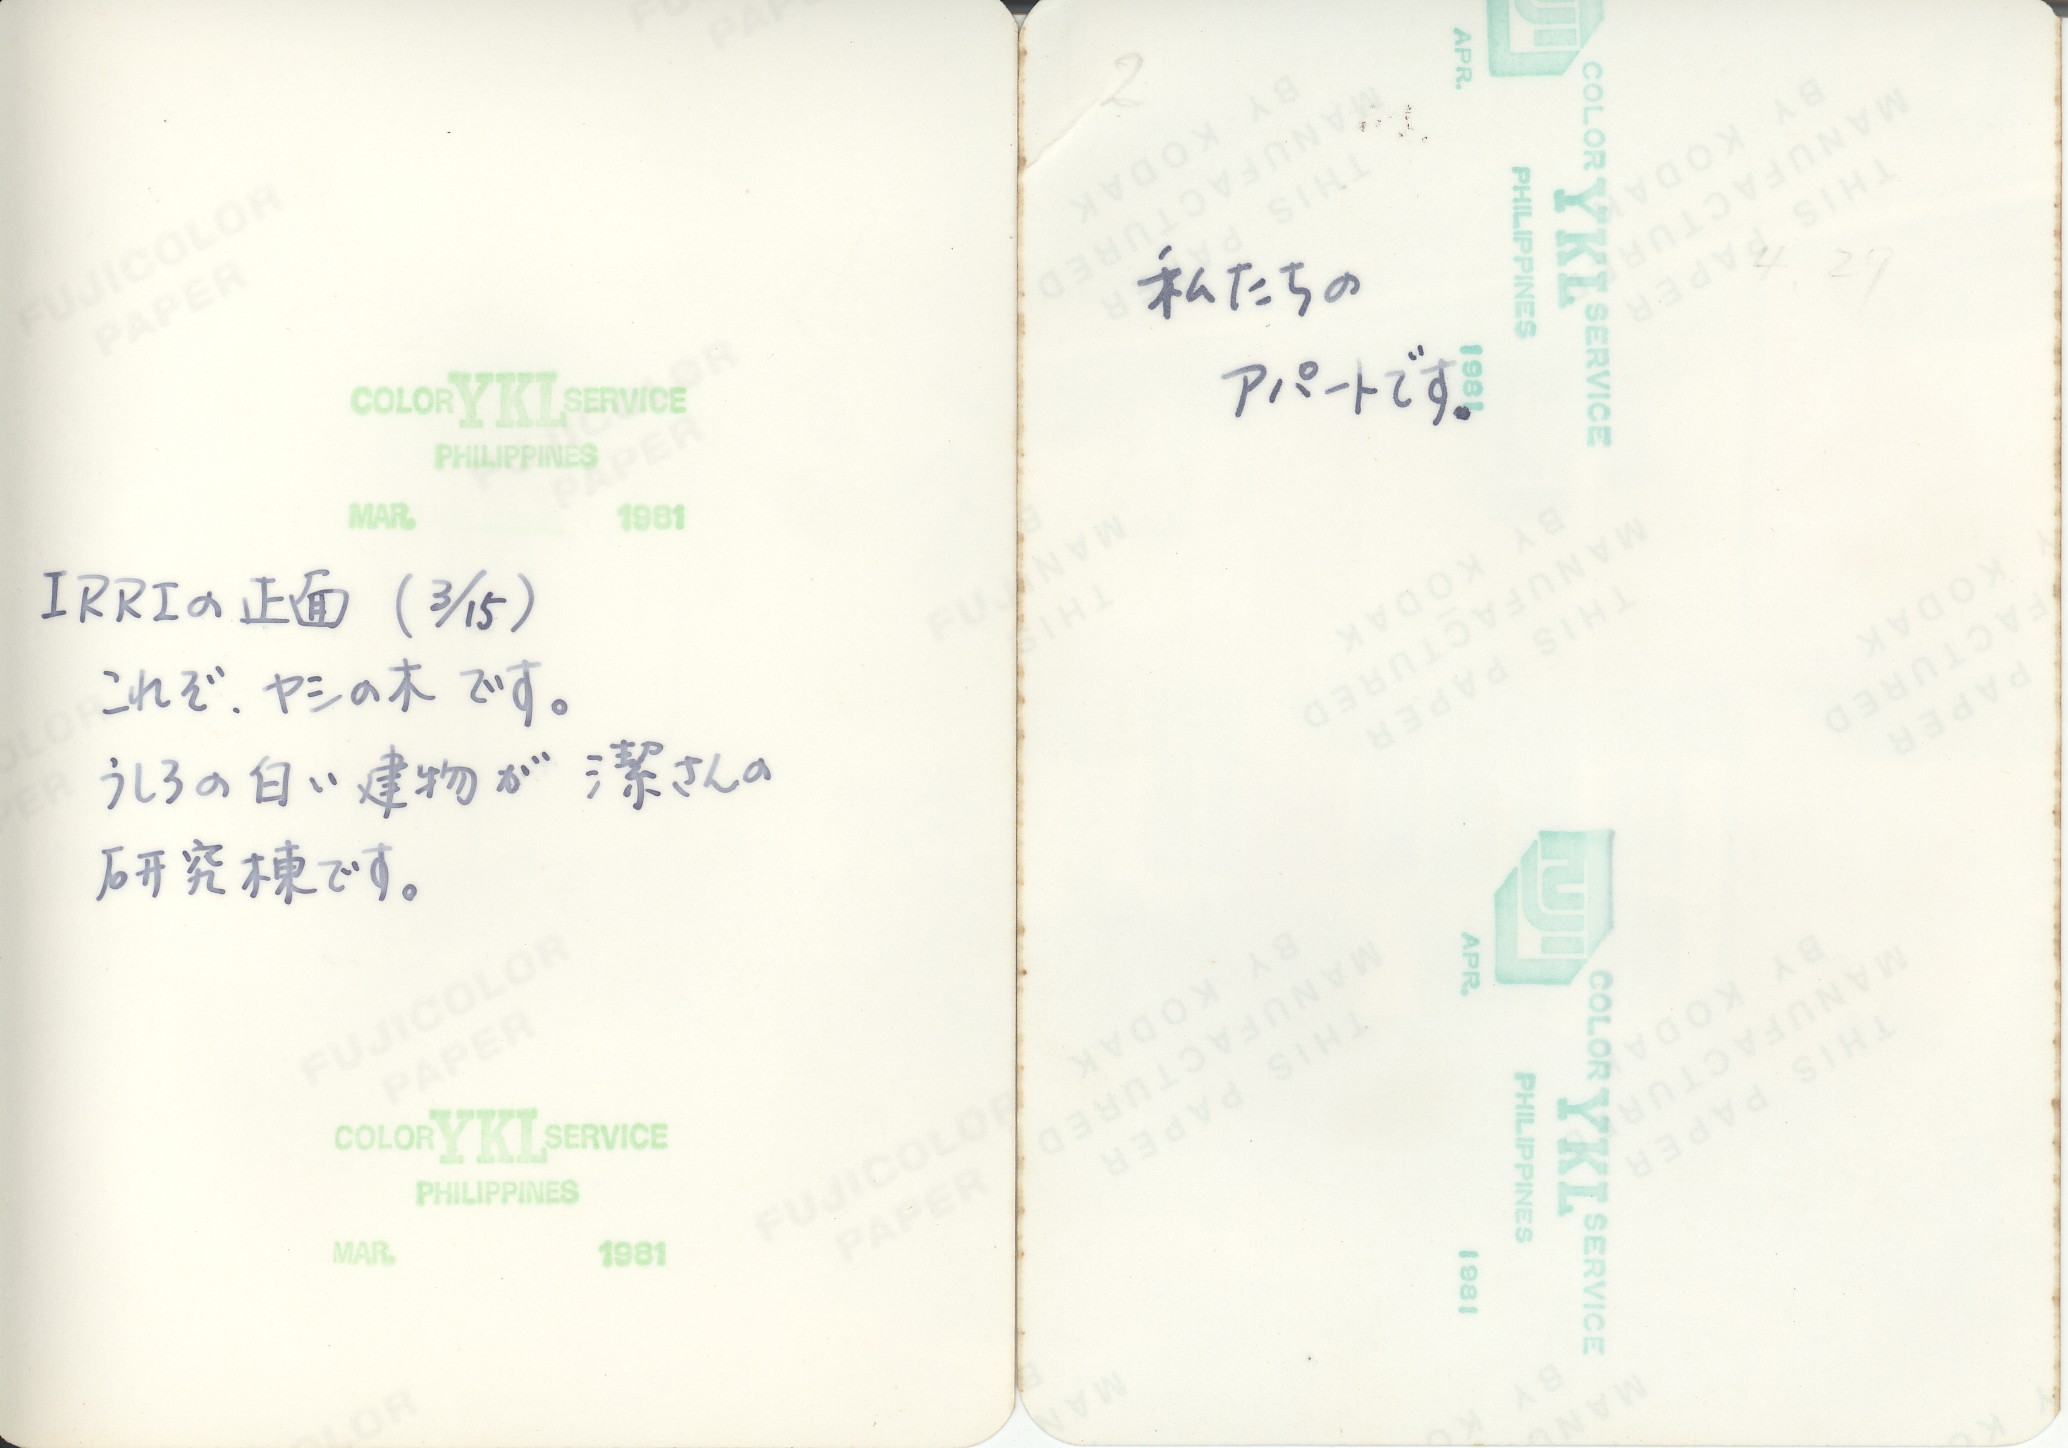 FUJICOLOR
PAPER
COLOR YKL SERVICE
PHILIPPINES
MAR. 1981
IRRIの正面 (3/15)
これぞ、ヤシの木です。
うしろの白い建物が 潔さんの
研究棟です。
FUJICOLOR
PAPER
COLOR YKL SERVICE
PHILIPPINES
MAR. 1981
FUJICOLOR
PAPER
2
4 29
私たちの
アパートです。
FUJI
COLOR YKL SERVICE
PHILIPPINES
APR. 1981
THIS PAPER
MANUFACTURED
BY KODAK
FUJI
COLOR YKL SERVICE
PHILIPPINES
APR. 1981
THIS PAPER
MANUFACTURED
BY KODAK